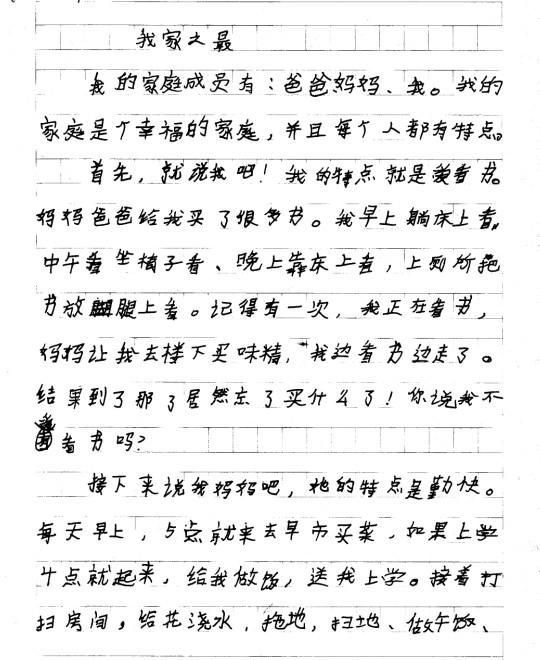 我家之最
我的家庭成员有：爸爸妈妈、我。我的
家庭是个幸福的家庭，并且每个人都有特点。
首先，就说我吧！我的特点就是爱看书。
妈妈爸爸给我买了很多书。我早上躺床上看，
中午看坐椅子看、晚上靠床上看，上厕所把
书放腿上看。记得有一次，我正在看书，
妈妈让我去楼下买味精，我边看书边走了。
结果到了那了居然忘了买什么了！你说我不
看书吗？
接下来说我妈妈吧，她的特点是勤快。
每天早上，5点就来去早市买菜，如果上学
4点就起来，给我做饭，送我上学。接着打
扫房间，给花浇水，拖地，扫地、做午饭、